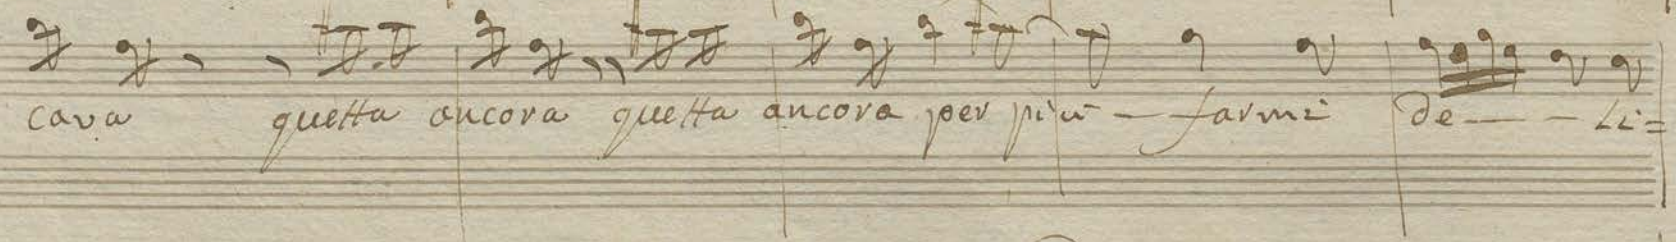 cava quetta ancora quetta ancora per piu - - farmi de - - - Li=